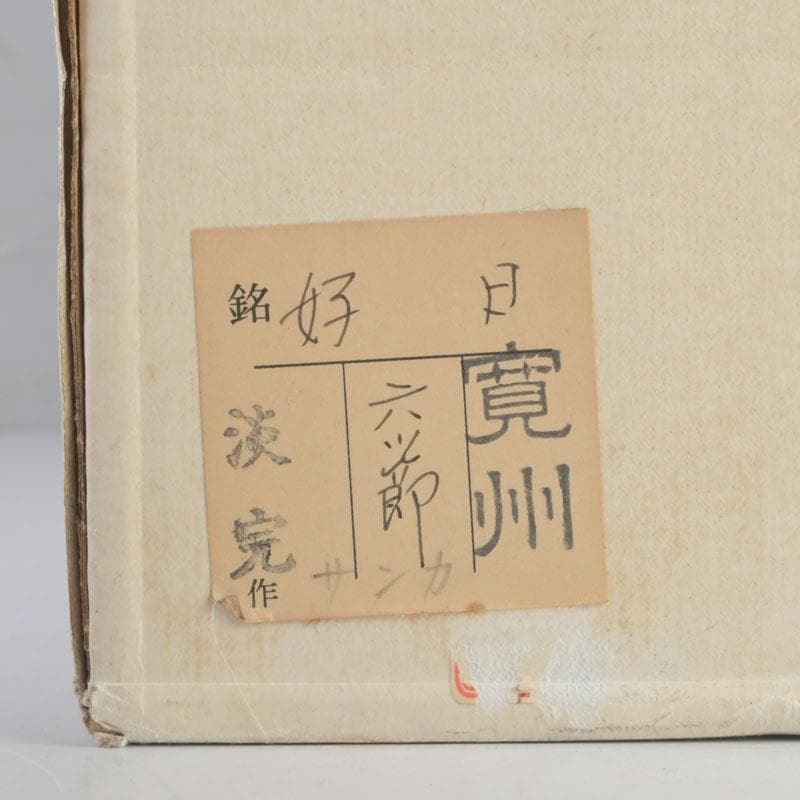 銘 好日
寛州
六ツ節
淡完作
サンカ